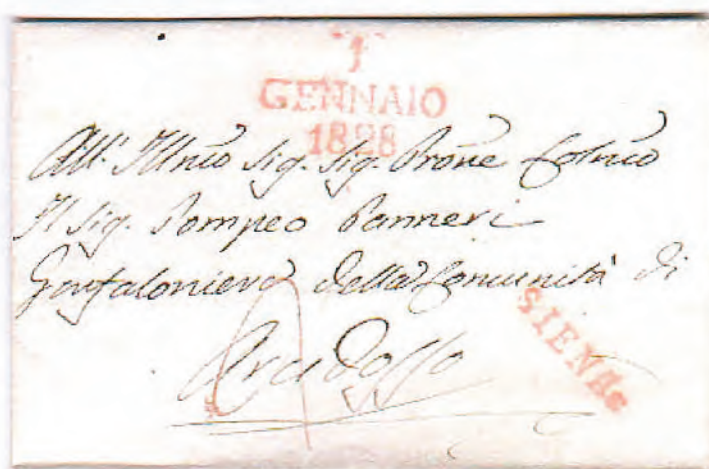 1
GENNAIO
1828
All' Illmo Sig. Sig. Prone Colmo
Il Sig. Pompeo Panneri
Gonfaloniere della Comunità di
SIENA
Arcidosso